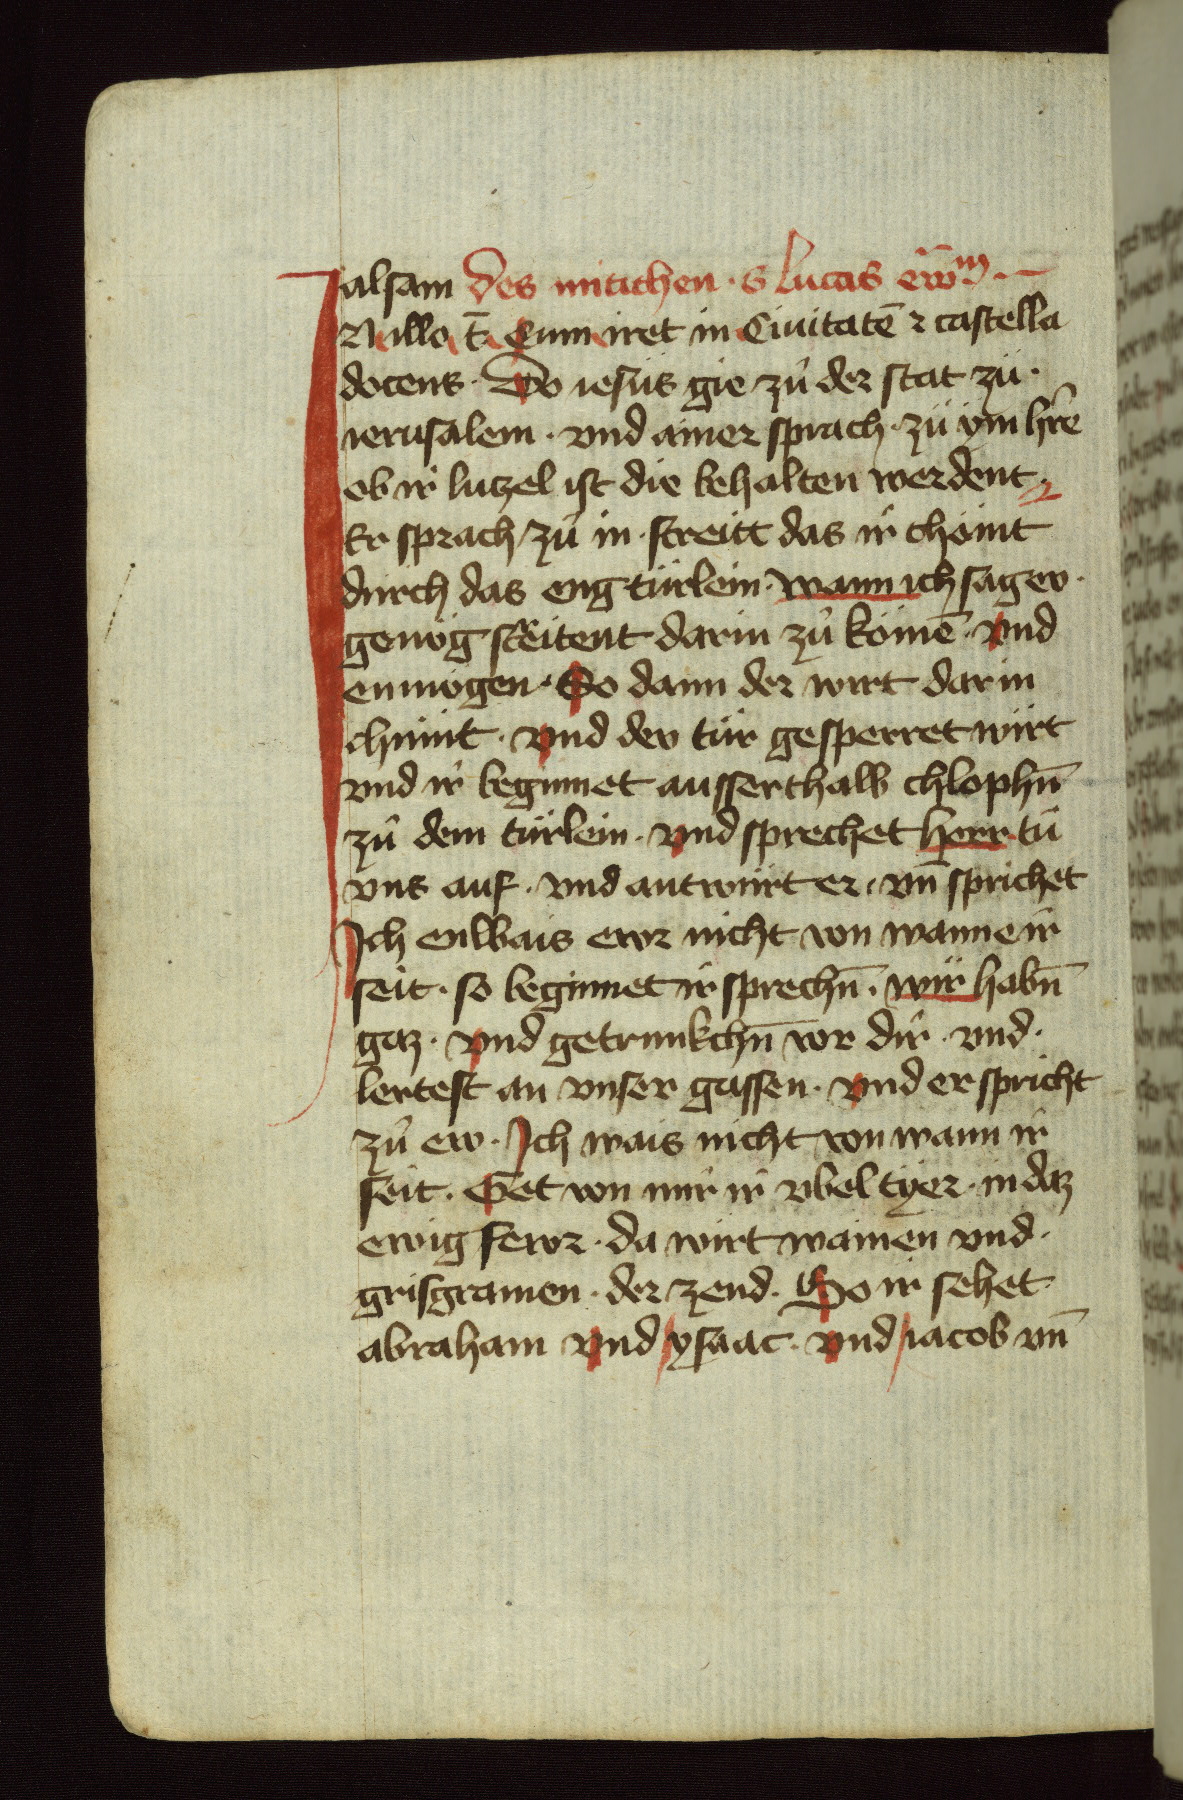 alsam des mitichen · S lucas ew̄m
IN illo t̄ Cum iret in Ciuitatē ⁊ castella
docens · Do iesus gie zů der stat zů ·
ierusalem · vnd ainer sprach · zů ym hr̄e
ob ir luczel ist die behalten werdent ·
Er sprach zů in · streitt das ir chömt
durch das eng türlein · wann ich sag ew ·
genůg streitent darin zů kömē · vnd
enmögen · So dann der wirt dar in
chümt · vnd dev tür gesperret wirt
vnd ir beginnet ausserthalb chlophn̄
zů dem türlein · vnd sprechet herr tů
vns auf · vnd antwurt er · vn̄ sprichet
Ich enwais ewr nicht von wanne ir
seit · so beginnet ir sprechn̄ · wir habn̄
gaz · vnd getrunkchn̄ vor dir · vnd ·
lertest an vnser gassen · vnd er spricht
zů ew · Ich wais nicht von wann ir
seit · Get von mir ir vbel tyer · in daz
ewig fewr · da wirt wainen vnd ·
grisgramen · der zend · So ir sehet
abraham vnd ysaac · vnd iacob vn̄